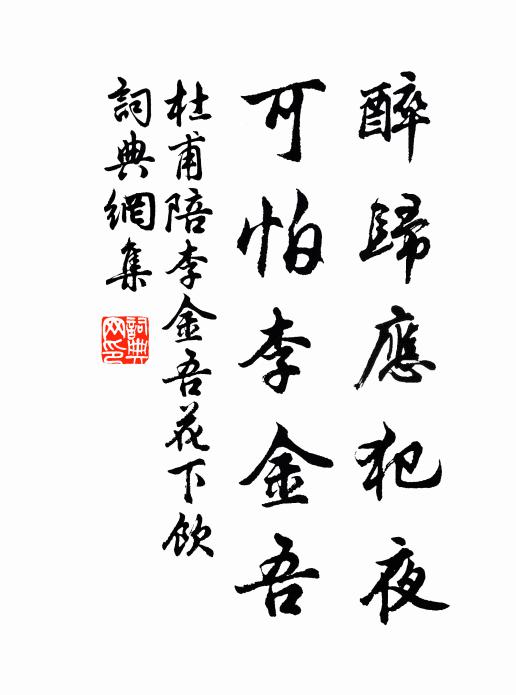 醉歸應犯夜
可怕李金吾
杜甫陪李金吾花下飲
詞典網集
詞典
网印